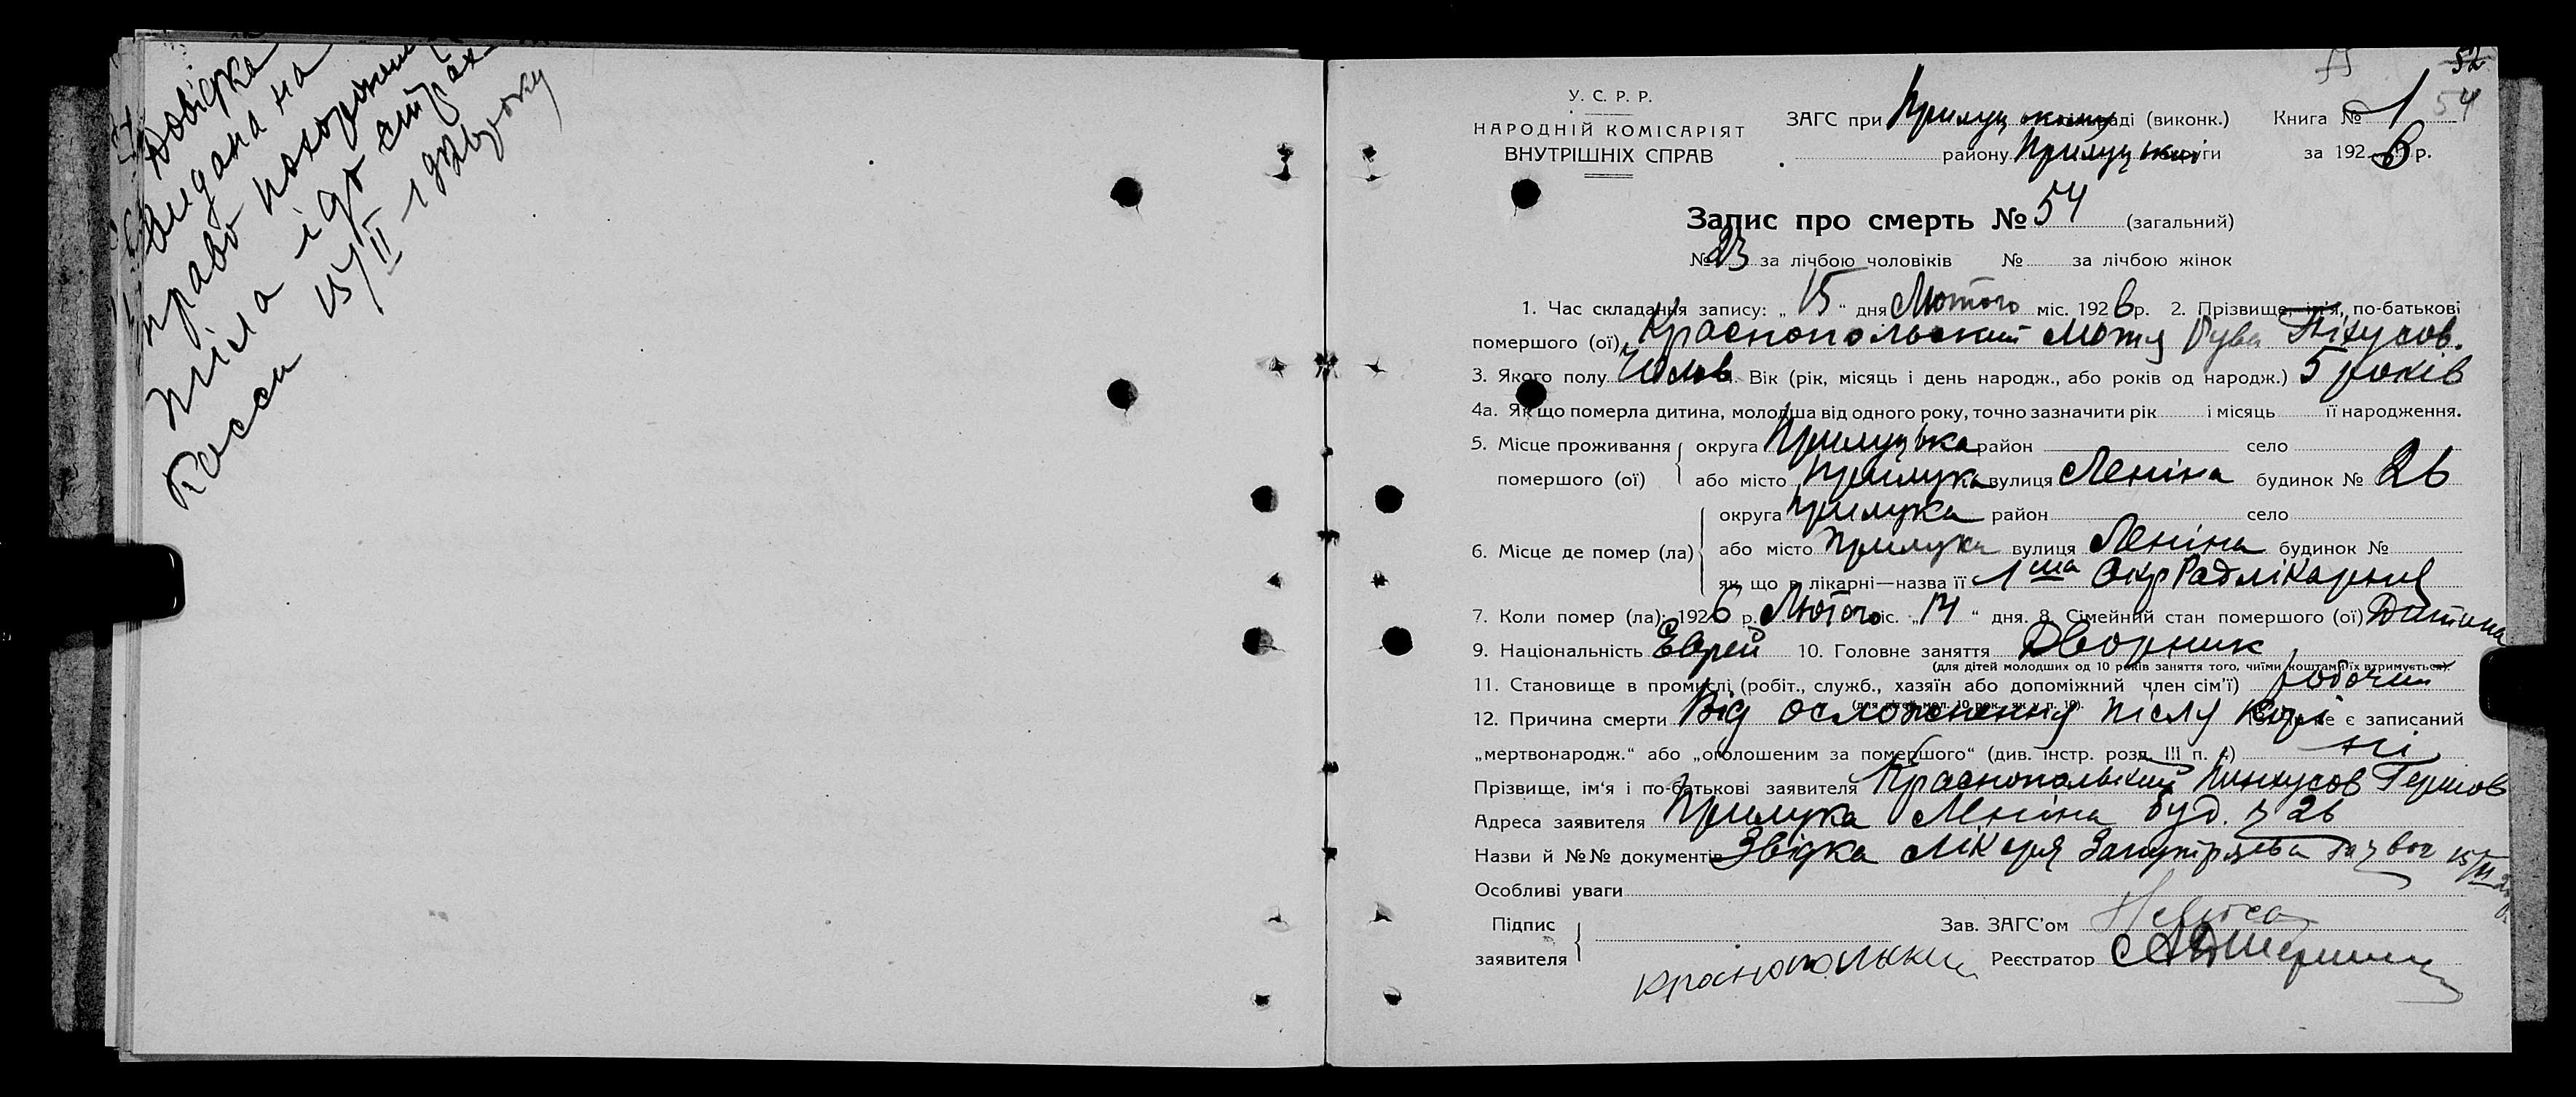 Довідка
видана на
право похорону
тіла і до страх
касси
15/II 1926 року
52
54
У. С. Р. Р.
НАРОДНІЙ КОМІСАРІЯТ
ВНУТРІШНІХ СПРАВ
ЗАГС при Прилуцькому раді (виконк.) Книга № 1
району Прилуцький округи за 1926 р.
Запис про смерть № 54 (загальний)
№ 23 за лічбою чоловіків № за лічбою жінок
1. Час складання запису: „15“ дня Лютого міс. 1926 р. 2. Прізвище, ім'я, по-батькові
помершого (ої) Краснопольский Мотя
3. Якого полу Чолов. Вік (рік, місяць і день народж., або років од народж.) 5 років
4а. Як що померла дитина, молодша від одного року, точно зазначити рік і місяць її народження.
5. Місце проживання округа Прилуцька район село
помершого (ої) або місто Прилука вулиця Леніна будинок № 26
округа Прилука район село
6. Місце де помер (ла) або місто Прилука вулиця Леніна будинок №
як що в лікарні—назва її 1ша ОкрРадлікарня
7. Коли помер (ла): 1926 р. Лютого міс. „14“ дня. 8. Сімейний стан помершого (ої) Дитина
9. Національність Еврей 10. Головне заняття Дворник
(для дітей молодших од 10 років заняття того, чиїми коштами їх втримується).
11. Становище в промислі (робіт., служб., хазяїн або допоміжний член сім'ї) робочий
(для дітей мол. 10 рок., як у п. 10).
12. Причина смерти Від осложнення після корі є записаний
„мертвонародж.“ або „оголошеним за помершого“ (див. інстр. розд. III п. ) ні
Прізвище, ім'я і по-батькові заявителя Краснопольский Пинхусов Гершов
Адреса заявителя Прилука Леніна буд. № 26
Назви й №№ документів Звідка лікаря 15/II 26
Особливі уваги
Підпис Зав. ЗАГС'ом
заявителя Краснопольский Реєстратор